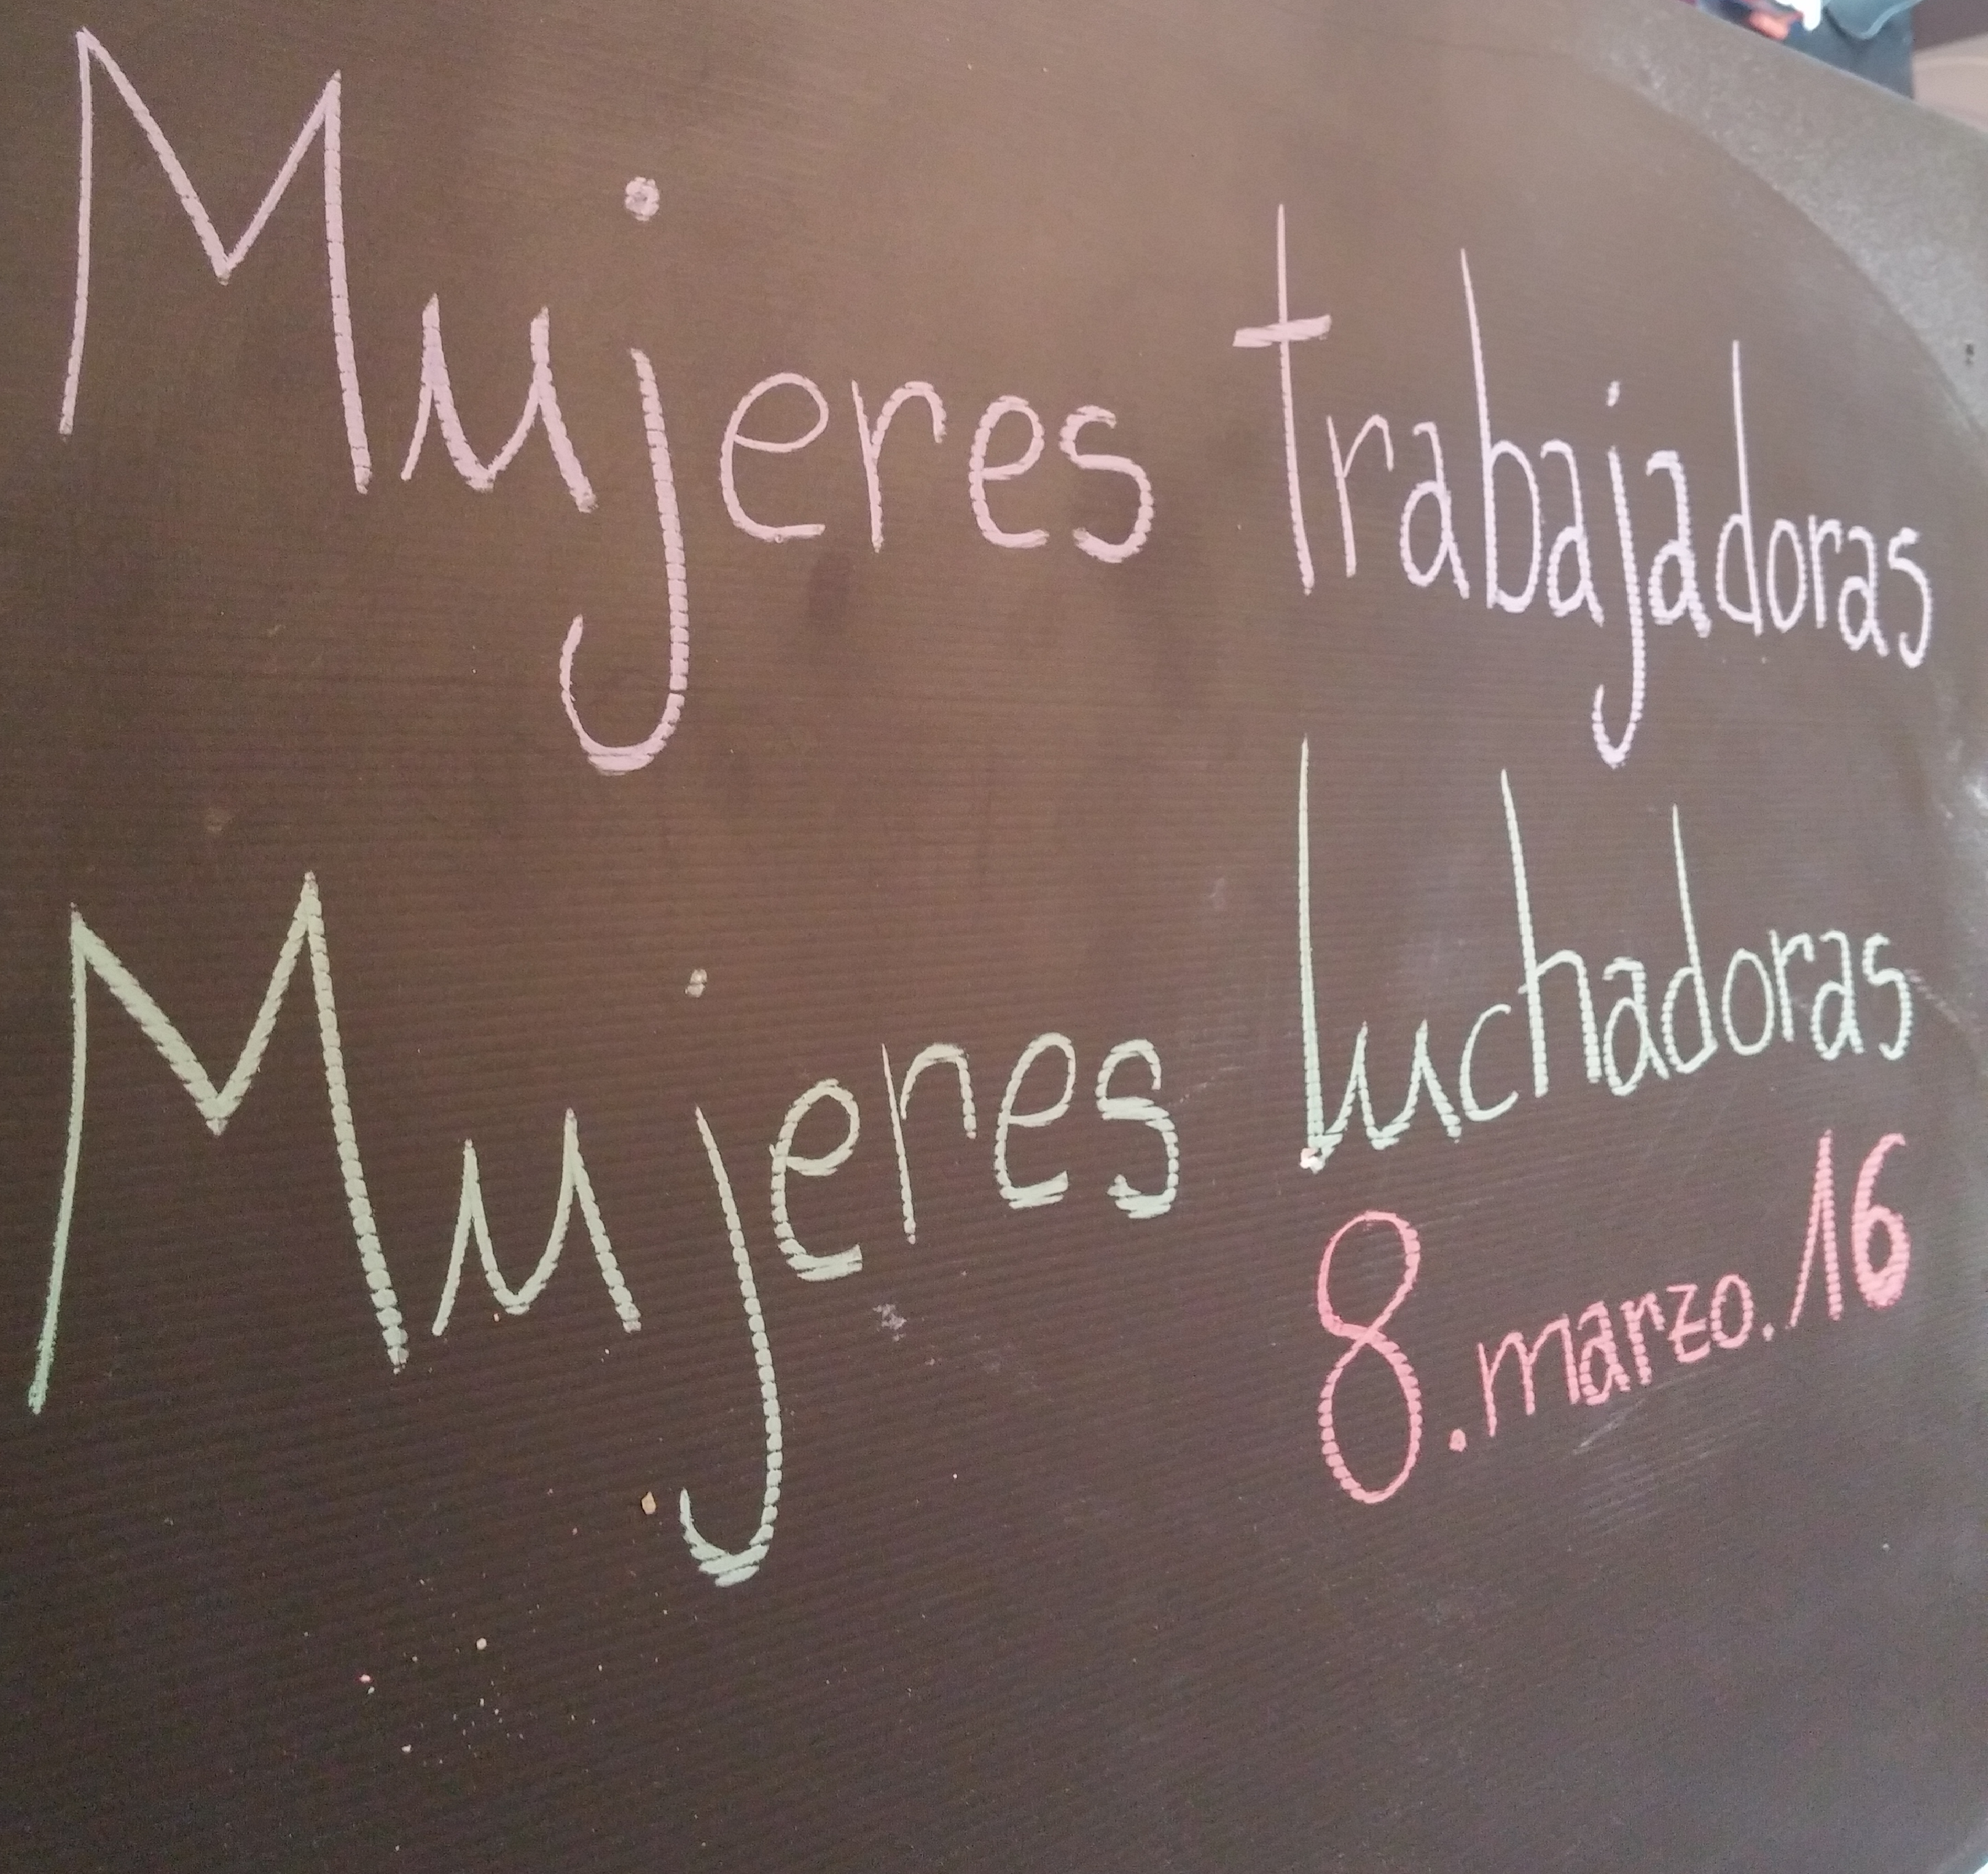 Mujeres trabajadoras
Mujeres luchadoras
8.marzo.16